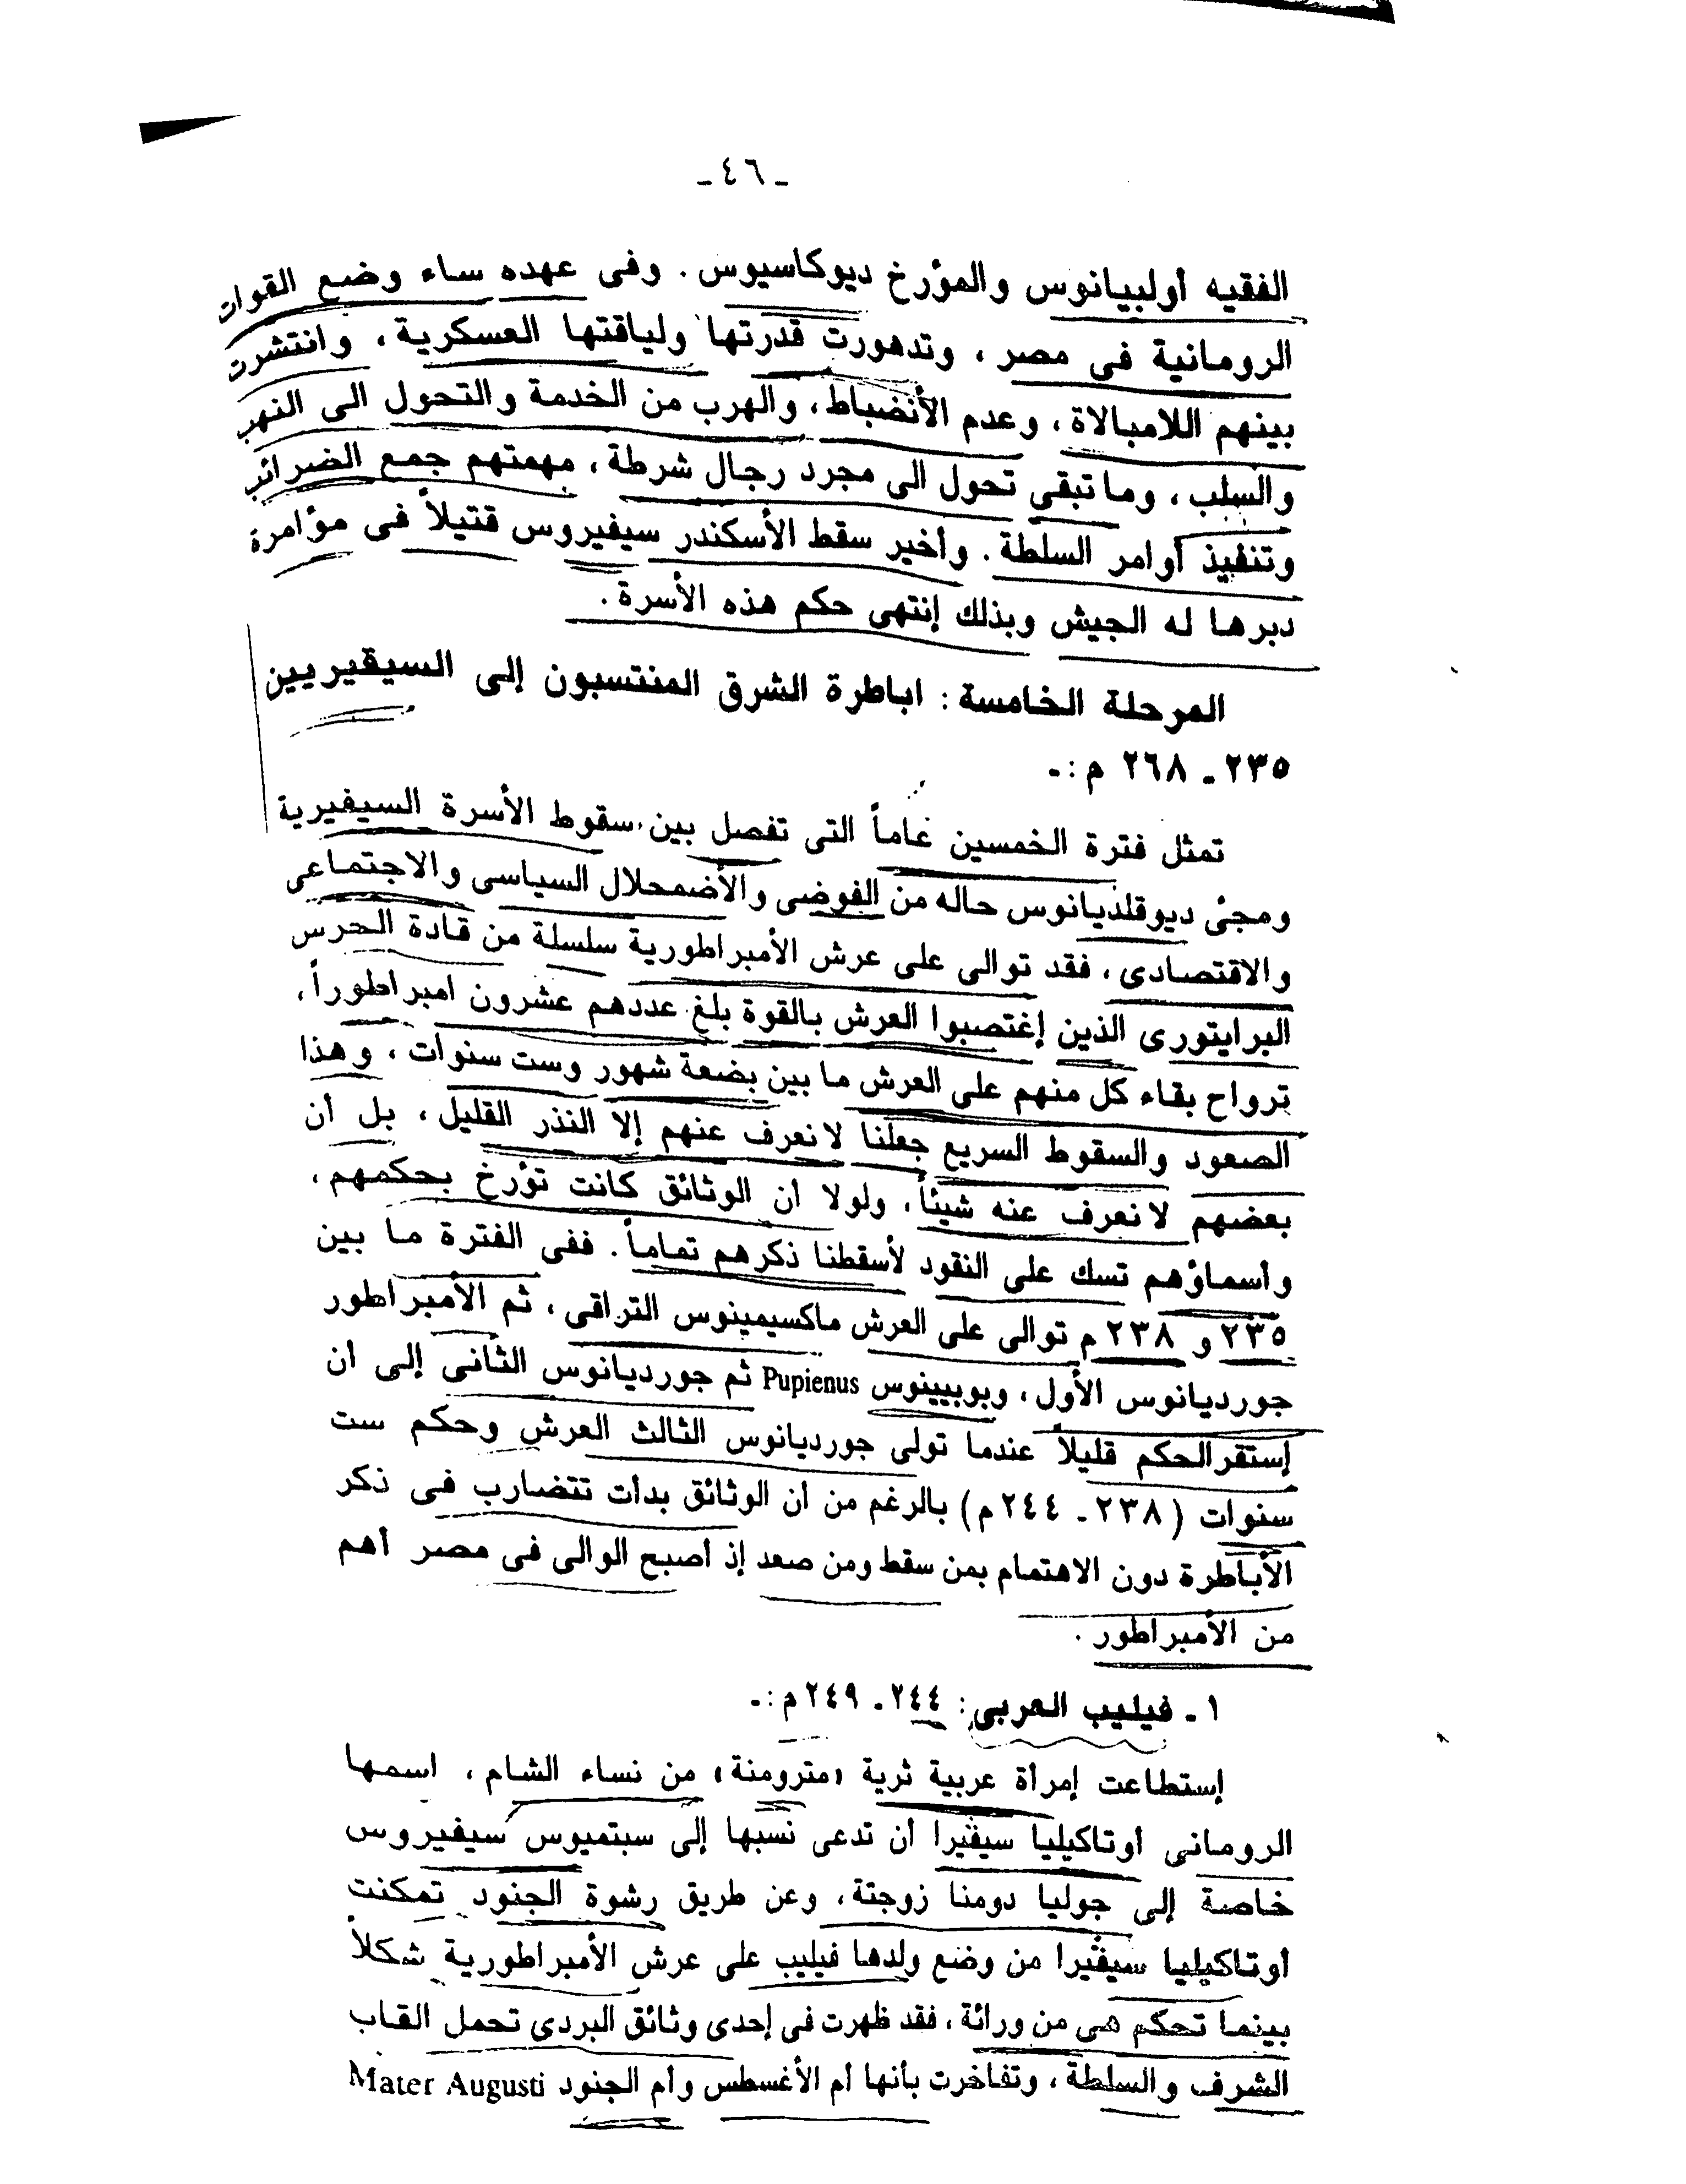 ـ ٤٦ ـ
الفقيه أولبيانوس والمؤرخ ديوكاسيوس . وفى عهده ساء وضع القوات
الرومانية فى مصر ، وتدهورت قدرتها ولياقتها العسكرية ، وانتشرت
بينهم اللامبالاة ، وعدم الأنضباط ، والهرب من الخدمة والتحول الى النهب
والسلب ، وما تبقى تحول الى مجرد رجال شرطة ، مهمتهم جمع الضرائب
وتنفيذ أوامر السلطة . وأخير سقط الأسكندر سيفيروس قتيلاً فى مؤامرة
دبرها له الجيش وبذلك إنتهى حكم هذه الأسرة .
المرحلة الخامسة : اباطرة الشرق المنتسبون إلى السيڤيريين
٢٣٥ ـ ٢٦٨ م : ـ
تمثل فترة الخمسين عاماً التى تفصل بين سقوط الأسرة السيفيرية
ومجئ ديوقلديانوس حاله من الفوضى والأضمحلال السياسى والاجتماعى
والاقتصادى ، فقد توالى على عرش الأمبراطورية سلسلة من قادة الحرس
البرايتورى الذين إغتصبوا العرش بالقوة بلغ عددهم عشرون امبراطوراً ،
ترواح بقاء كل منهم على العرش ما بين بضعة شهور وست سنوات ، وهذا
الصعود والسقوط السريع جعلنا لا نعرف عنهم إلا النذر القليل ، بل أن
بعضهم لا نعرف عنه شيئاً ، ولولا أن الوثائق كانت تؤرخ بحكمهم ،
وأسماؤهم تسك على النقود لأسقطنا ذكرهم تماماً . ففى الفترة ما بين
٢٣٥ و ٢٣٨ م توالى على العرش ماكسيمينوس التراقى ، ثم الأمبراطور
جورديانوس الأول ، وبوبيينوس Pupienus ثم جورديانوس الثانى إلى أن
إستقرالحكم قليلاً عندما تولى جورديانوس الثالث العرش وحكم ست
سنوات (٢٣٨ ـ ٢٤٤ م) بالرغم من أن الوثائق بدأت تتضارب فى ذكر
الأباطرة دون الاهتمام بمن سقط ومن صعد إذ أصبح الوالى فى مصر أهم
من الأمبراطور .
١ ـ فيليب العربى : ٢٤٤ ـ ٢٤٩ م : ـ
إستطاعت إمرأة عربية ثرية «مترومنة» من نساء الشام ، اسمها
الرومانى أوتاكيليا سيڤيرا أن تدعى نسبها إلى سبتميوس سيفيروس
خاصة إلى جوليا دومنا زوجتة ، وعن طريق رشوة الجنود تمكنت
أوتاكيليا سيڤيرا من وضع ولدها فيليب على عرش الأمبراطورية شكلاً
بينما تحكم هى من ورائة ، فقد ظهرت فى إحدى وثائق البردى تحمل القاب
الشرف والسلطة ، وتفاخرت بأنها أم الأغسطس وأم الجنود Mater Augusti